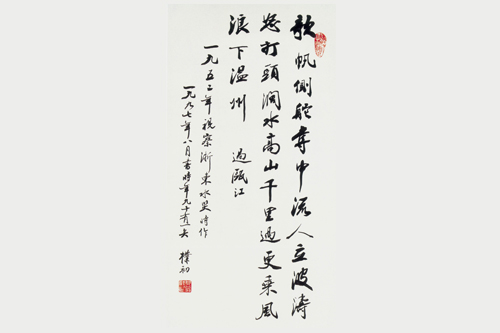 欹帆側舵奪中流人立波濤
怒打頭澗水高山千里過更乘風
浪下温州 過甌江
一九五二年視察浙東水災時作
一九九七年八月書時年九十有一矣 樸初